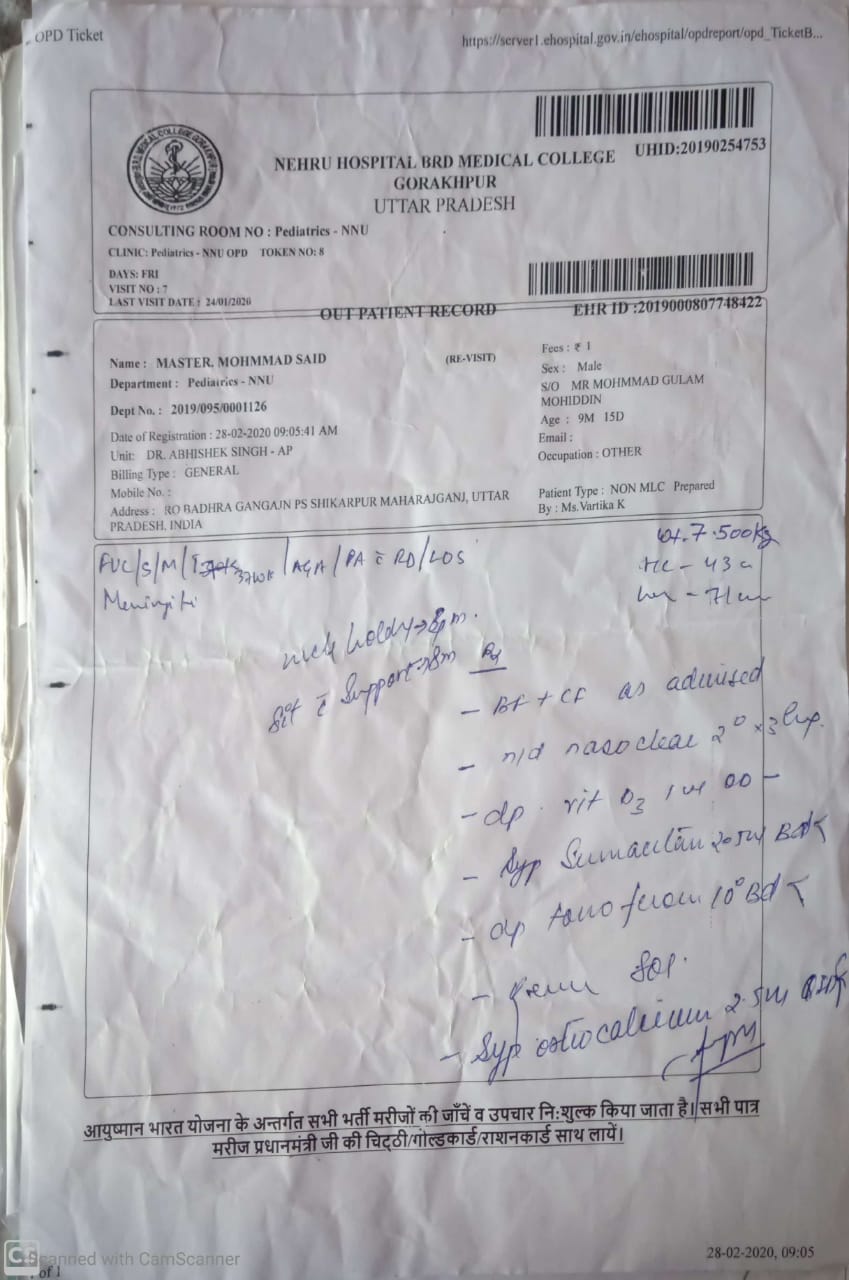 OPD Ticket
https://server1.ehospital.gov.in/ehospital/opdreport/opd_TicketB...
NEHRU HOSPITAL BRD MEDICAL COLLEGE
GORAKHPUR
UTTAR PRADESH
UHID:20190254753
CONSULTING ROOM NO : Pediatrics - NNU
CLINIC: Pediatrics - NNU OPD TOKEN NO: 8
DAYS: FRI
VISIT NO : 7
LAST VISIT DATE : 24/01/2020
OUT PATIENT RECORD
EHR ID :2019000807748422
Name : MASTER. MOHMMAD SAID (RE-VISIT)
Department : Pediatrics - NNU
Dept No. : 2019/095/0001126
Date of Registration : 28-02-2020 09:05:41 AM
Unit: DR. ABHISHEK SINGH - AP
Billing Type : GENERAL
Mobile No. :
Address : RO BADHRA GANGAJN PS SHIKARPUR MAHARAJGANJ, UTTAR
PRADESH, INDIA
Fees : ₹ 1
Sex : Male
S/O MR MOHMMAD GULAM
MOHIDDIN
Age : 9M 15D
Email :
Occupation : OTHER
Patient Type : NON MLC Prepared
By : Ms.Vartika K
FUC/S/M/ 37wk /AGA/PA c̄ RD/LOS
wt. 7.500kg
HC - 43 c
- 71 cm
neck holdy →
Sit c̄ Support → 8m
- BF + CF as advised
- n/d nasoclear 2° x 3
- dp. vit D3 1 ml OD -
- Syp 2.5ml Bd
- dp ferom 10° Bd
- Syp ostiocalcium 2.5ml
आयुष्मान भारत योजना के अन्तर्गत सभी भर्ती मरीजों की जाँचें व उपचार नि:शुल्क किया जाता है। सभी पात्र
मरीज प्रधानमंत्री जी की चिट्ठी/गोल्डकार्ड/राशनकार्ड साथ लायें।
Scanned with CamScanner
of 1
28-02-2020, 09:05